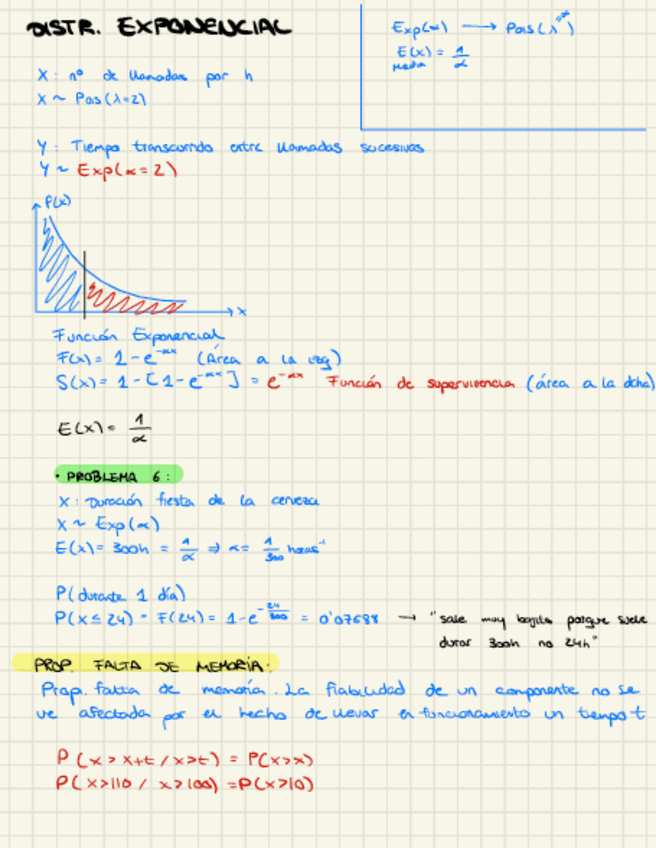 DISTR. EXPONENCIAL
Exp(α) → Pois(λ"α")
E(x) = 1/α
Media
X: nº de llamadas por h
X ~ Pois(λ=2)
Y: Tiempo transcurrido entre llamadas sucesivas
Y ~ Exp(α=2)
P(x)
x
Función Exponencial
F(x) = 1-e^-αx (Área a la izq)
S(x) = 1-[1-e^-αx] = e^-αx Función de supervivencia (área a la dcha)
E(x) = 1/α
· PROBLEMA 6:
X: Duración fiesta de la cerveza
X ~ Exp(α)
E(x) = 300h = 1/α ⇒ α = 1/300 horas⁻¹
P(durante 1 día)
P(x≤24) = F(24) = 1-e^-24/300 = 0'07688 → "sale muy bajito porque suele
durar 300h no 24h"
PROP. FALTA DE MEMORIA:
Prop. falta de memoria. La fiabilidad de un componente no se
ve afectada por el hecho de llevar en funcionamiento un tiempo t
P(x>x+t / x>t) = P(x>x)
P(x>110 / x>100) = P(x>10)